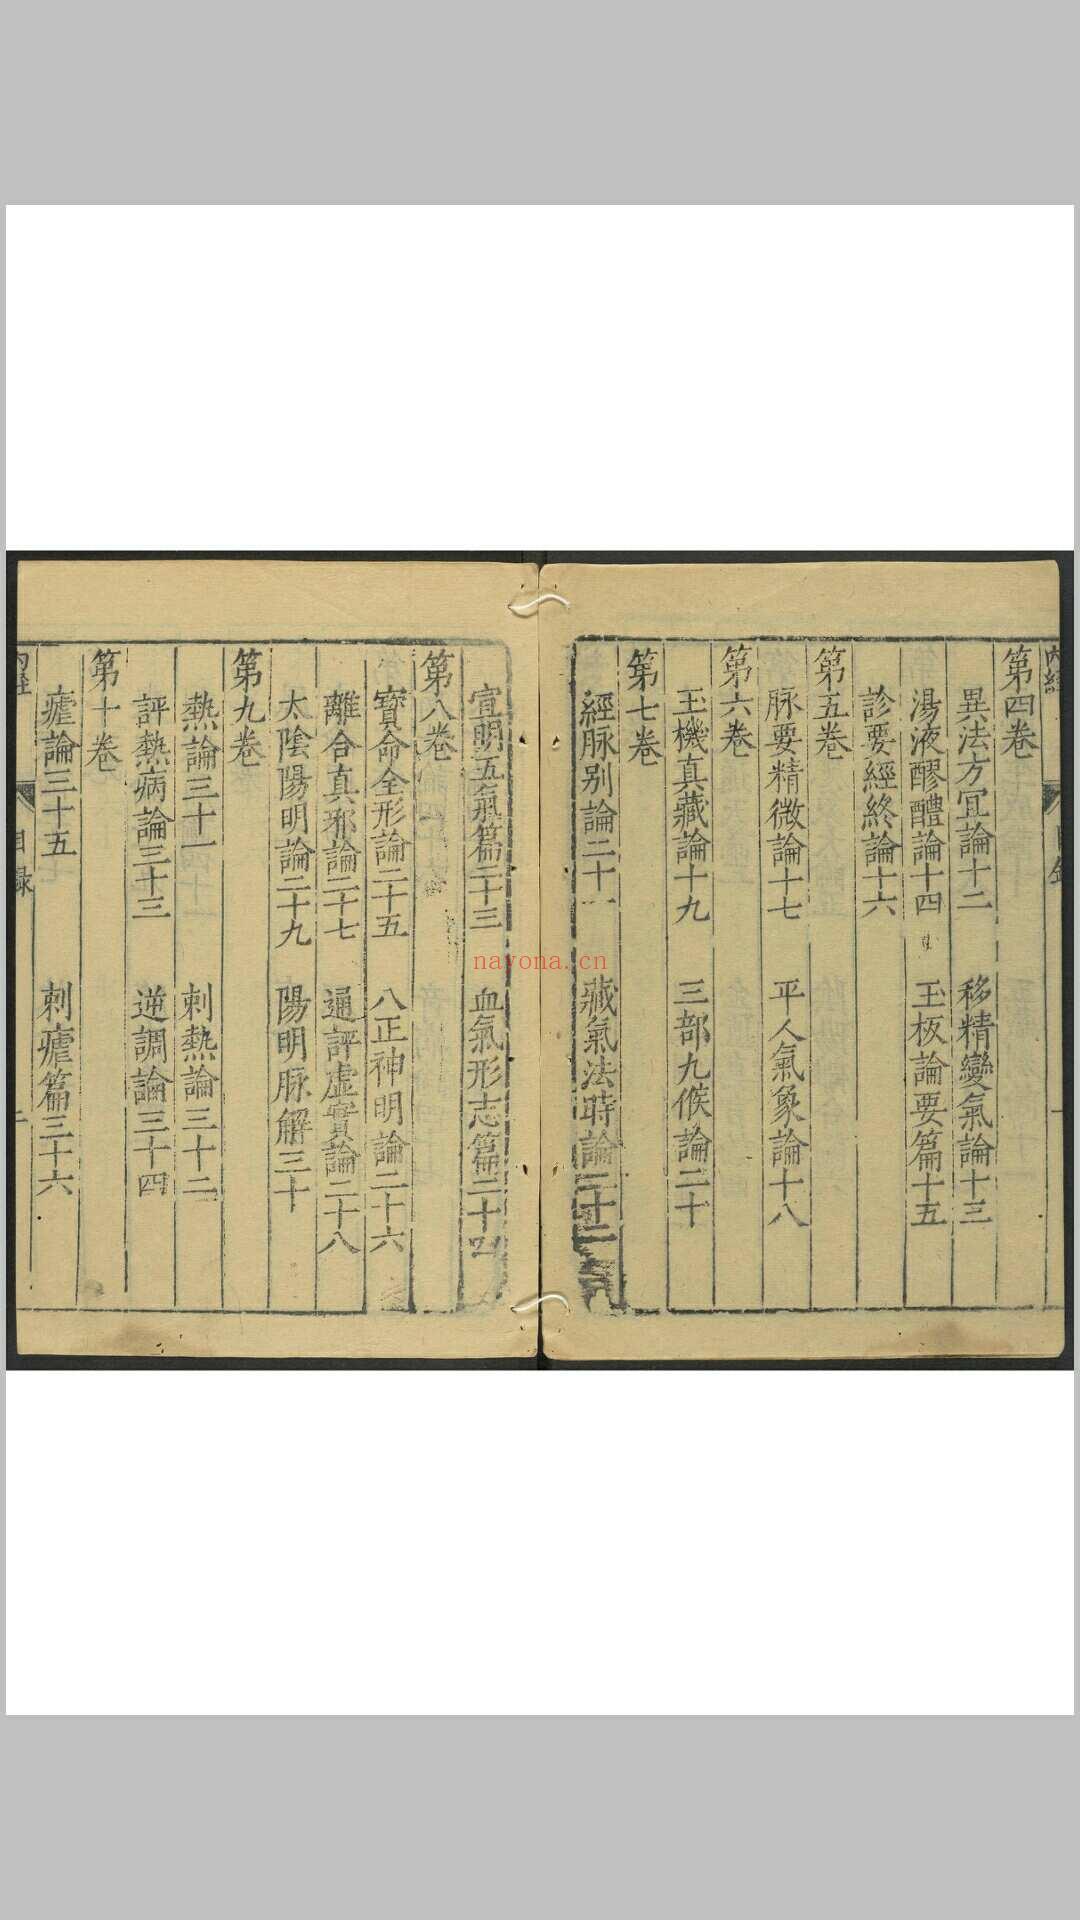 內經 目錄
第四卷
異法方宜論十二 移精變氣論十三
湯液醪醴論十四 玉板論要篇十五
診要經終論十六
第五卷
脉要精微論十七 平人氣象論十八
第六卷
玉機真藏論十九 三部九候論二十
第七卷
經脉別論二十一 藏氣法時論二十二
宣明五氣篇二十三 血氣形志篇二十四
第八卷
寶命全形論二十五 八正神明論二十六
離合真邪論二十七 通評虛實論二十八
太陰陽明論二十九 陽明脉解三十
第九卷
熱論三十一 刺熱論三十二
評熱病論三十三 逆調論三十四
第十卷
瘧論三十五 刺瘧篇三十六
內經 目錄
nayona.cn